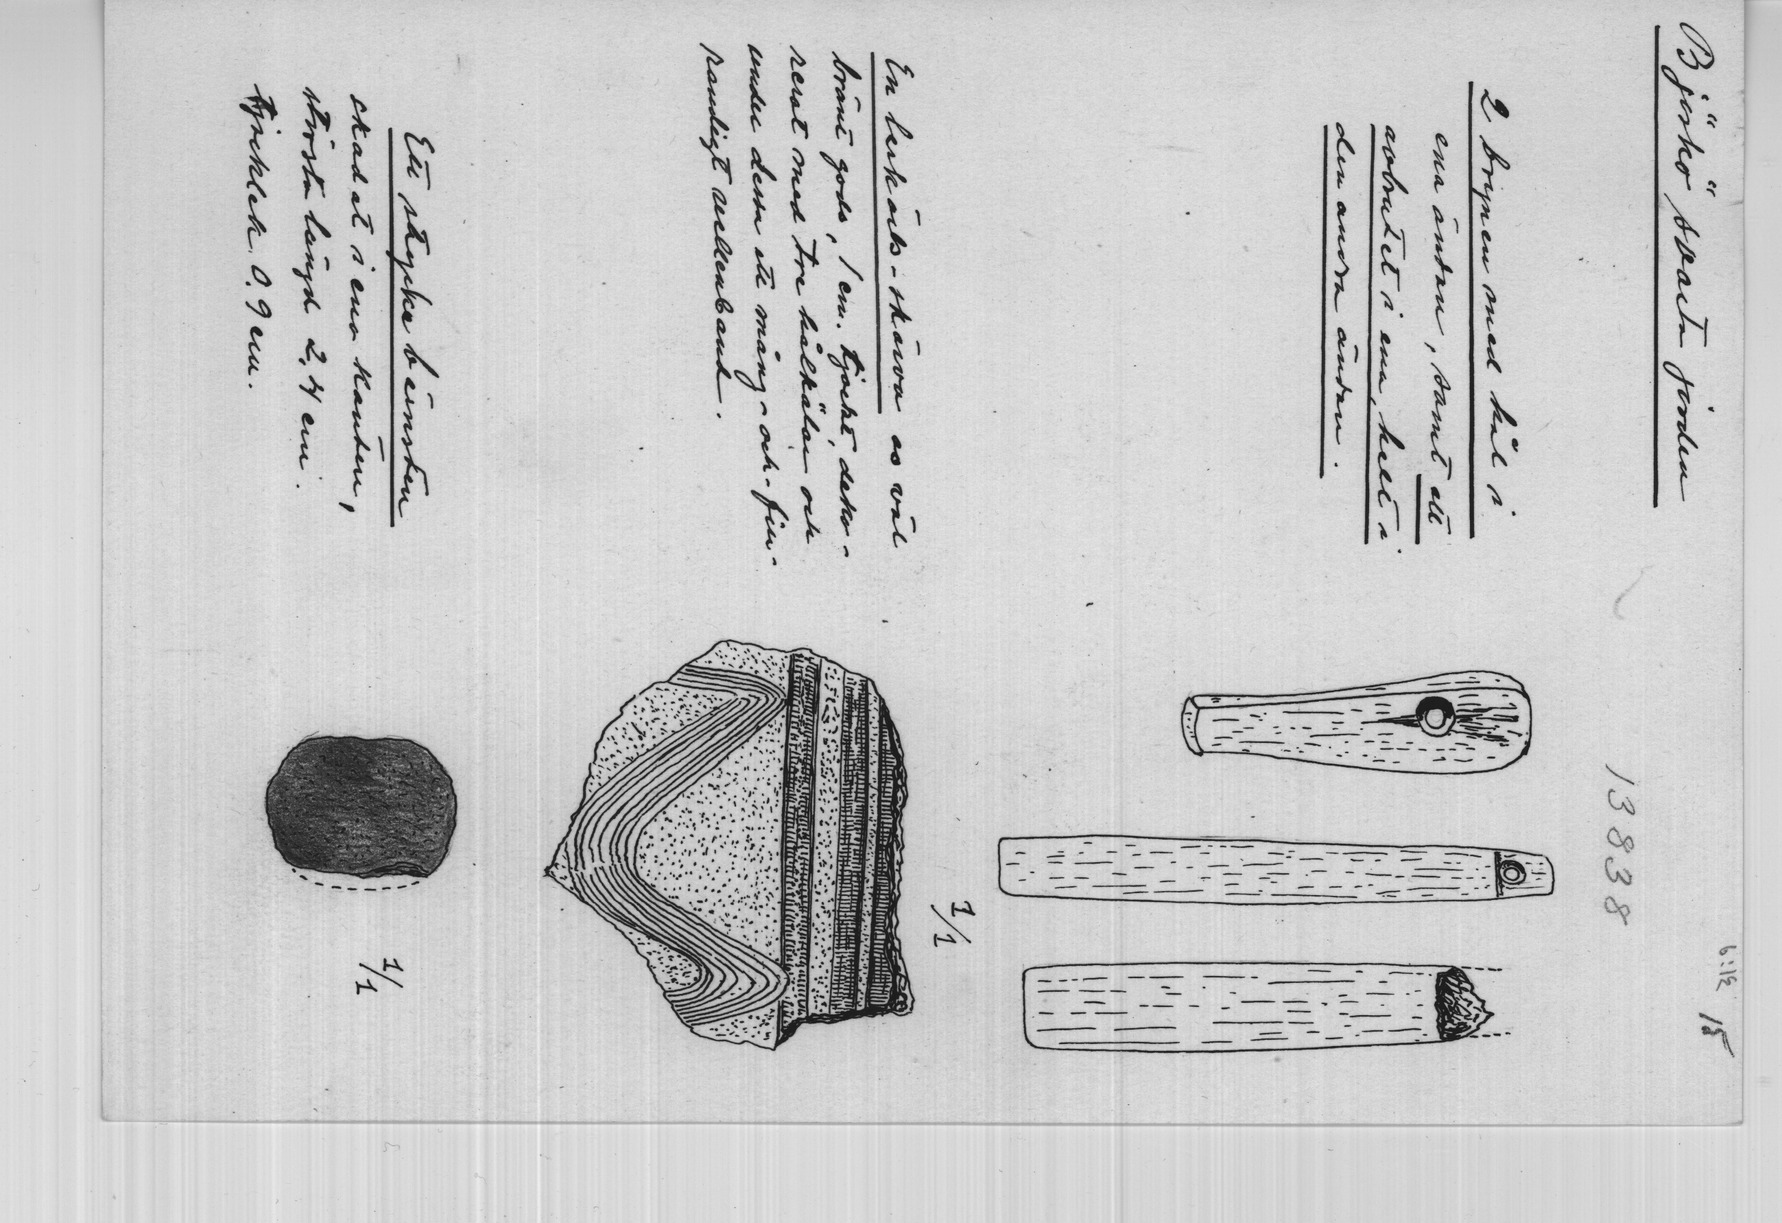 Björkö svarta jorden
6:12 15
13838
2 brynen med hål i
ena ändan, samt ett
avbrutet i ena, helt i
den andra ändan.
1/1
En lerkärls-skärva av väl
bränt gods, 1 cm. tjockt, deko-
rerat med tre hålkälar och
under dessa ett mång- och fin-
randigt vulkenband.
Ett stycke bärnsten
skadat i ena kanten,
största längd 2,4 cm.
tjocklek 0.9 cm.
1/1